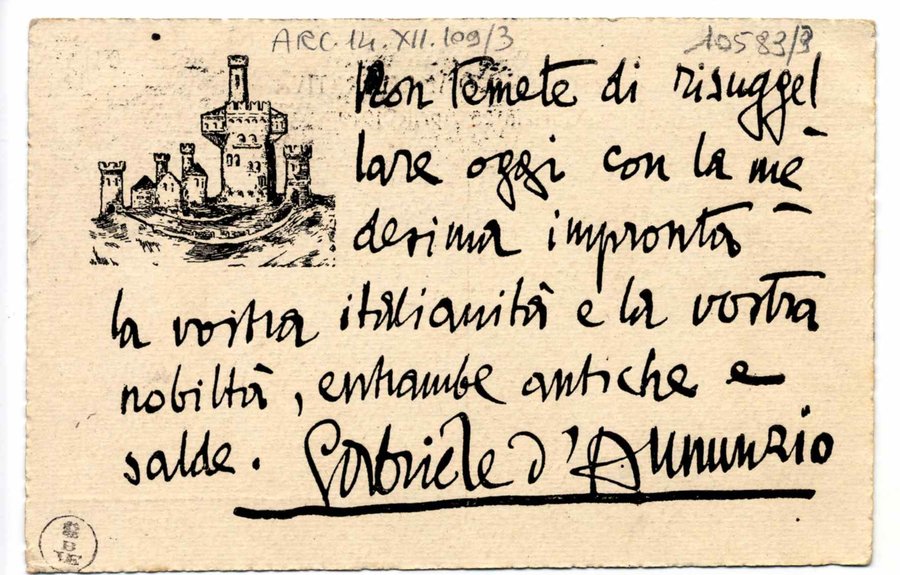 ARC. 14. XII. 109/3
10583/3
Non temete di risuggel
lare oggi con la me
desima impronta
la vostra italianità e la vostra
nobiltà, entrambe antiche e
salde. Gabriele d'Annunzio